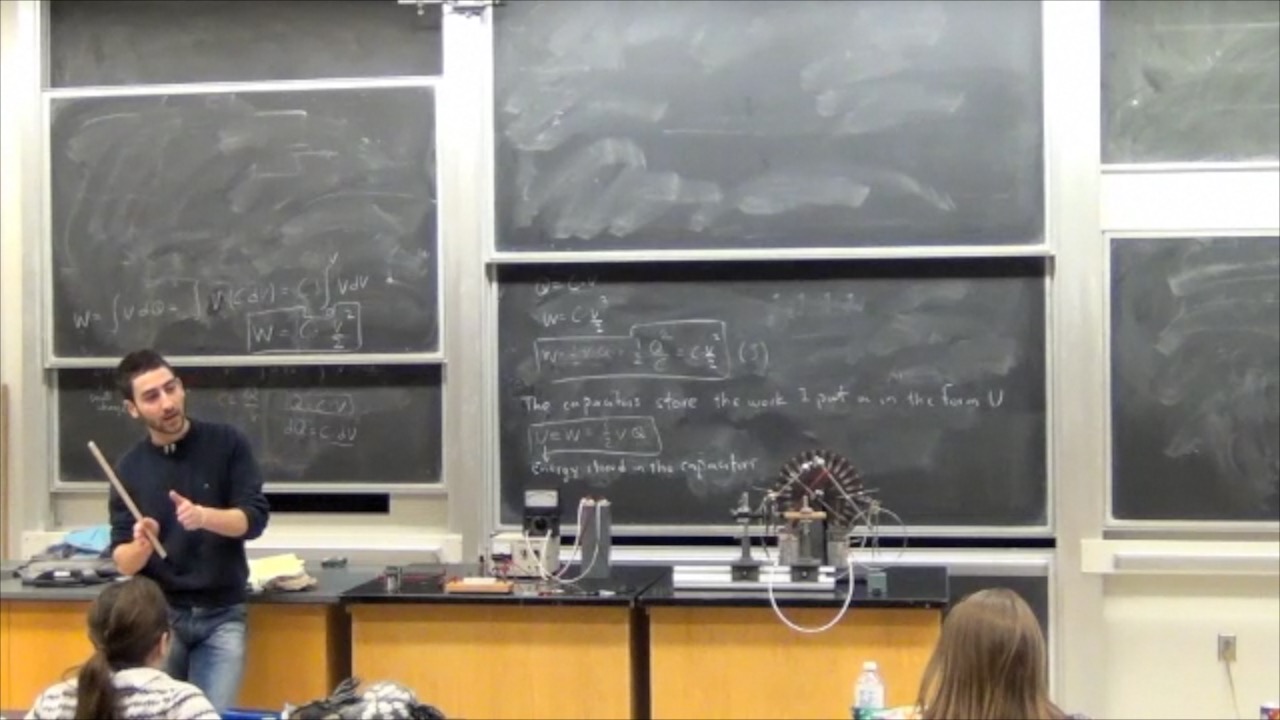 W = ∫ V dQ = ∫ V (C dV) = C ∫ V dV
W = C · V²/2
Q = C · V
dQ = C dV
Q = C · V
W = C V²/2
W = ½ V Q = ½ Q²/C = C V²/2 (J)
The capacitors store the work I put in the form U
U = W = ½ V Q
Energy stored in the capacitors